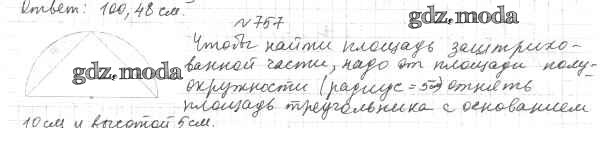 Ответ: 100,48 см.
№757
gdz.moda
Чтобы найти площадь заштрихо-
ванной части, надо от площади полу-
gdz.moda
окружности (радиус = 5) отнять
площадь треугольника с основанием
10 см и высотой 5 см.